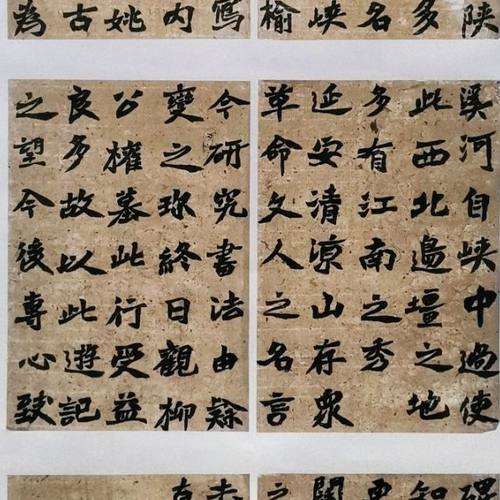 陕
多
名
峡
榆
寫
内
姚
古
為
溪河自峡中過使
此西北邊壃之地
多有江南之秀
延安清凉山存眾
革命文人之名言
今研究書法由隸
變之珎終日觀柳
公權墓此行受益
良多故以此遊記
之望今後專心致